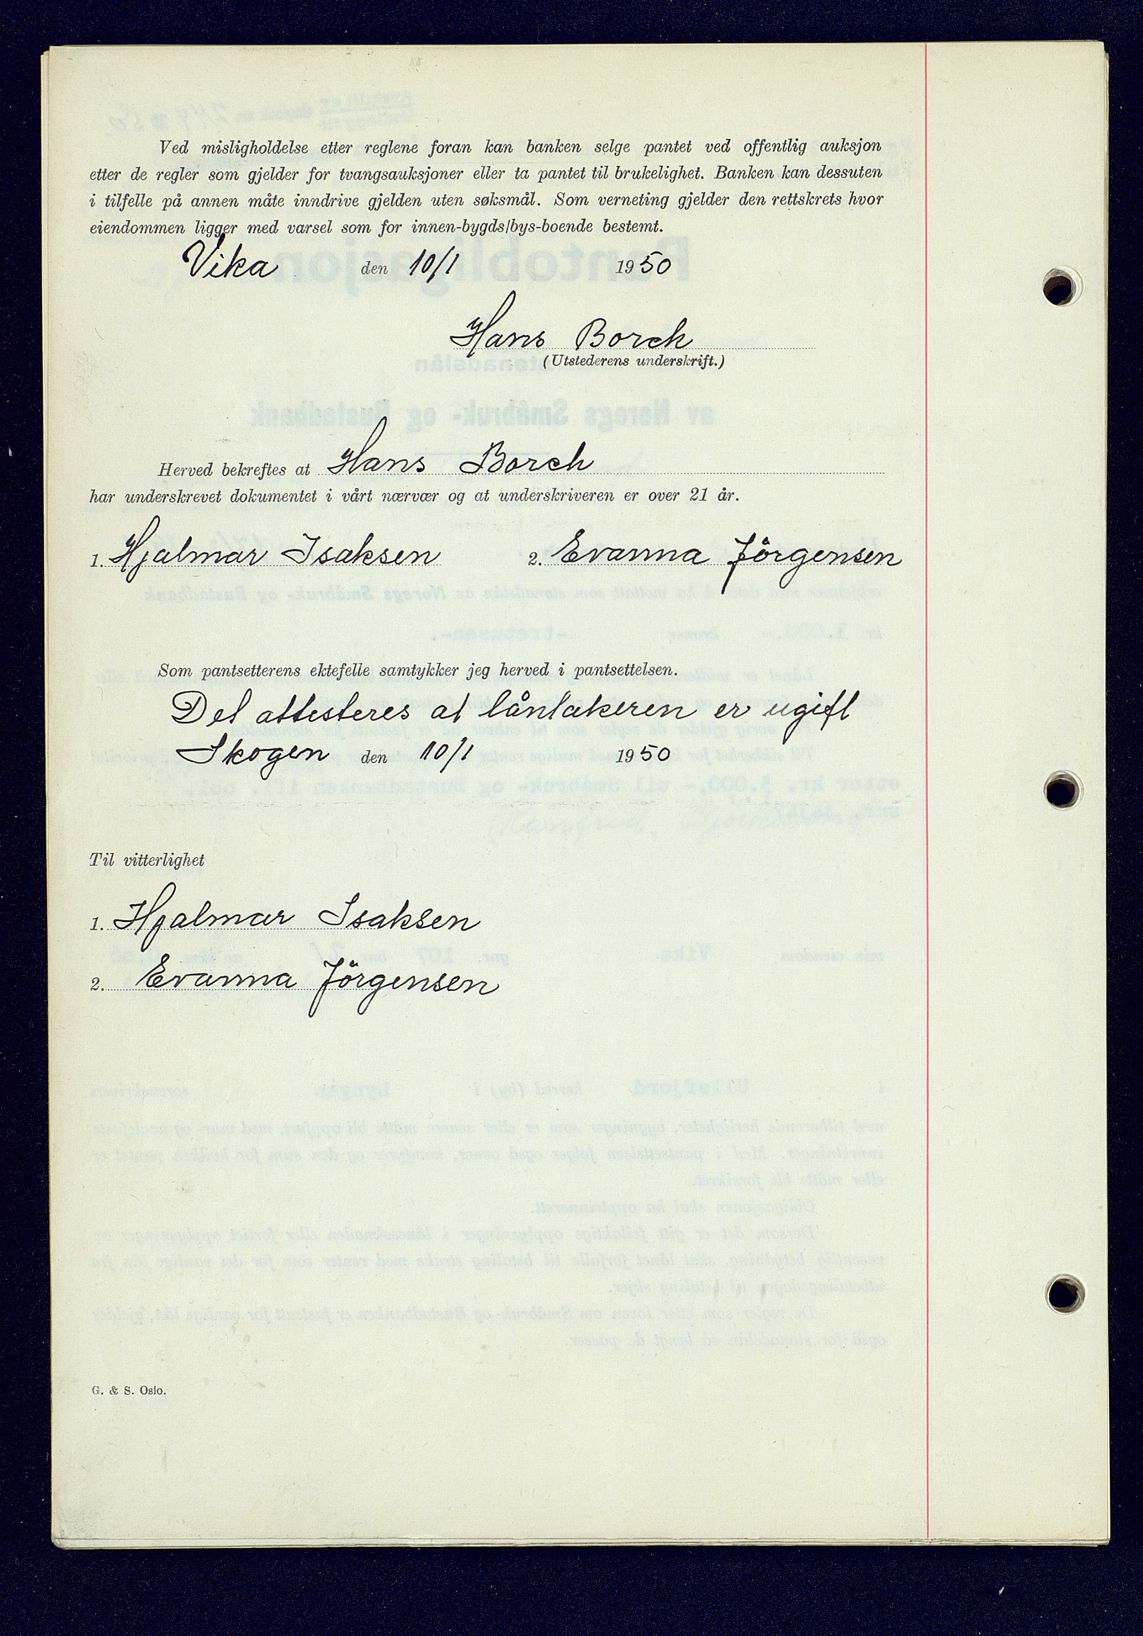 Ved misligholdelse etter reglene foran kan banken selge pantet ved offentlig auksjon
etter de regler som gjelder for tvangsauksjoner eller ta pantet til brukelighet. Banken kan dessuten
i tilfelle på annen måte inndrive gjelden uten søksmål. Som verneting gjelder den rettskrets hvor
eiendommen ligger med varsel som for innen-bygds/bys-boende bestemt.
Vika den 10/1 1950
Hans Borch
(Utstederens underskrift.)
Herved bekreftes at Hans Borch
har underskrevet dokumentet i vårt nærvær og at underskriveren er over 21 år.
1. Hjalmar Isaksen 2. Evanna Jörgensen
Som pantsetterens ektefelle samtykker jeg herved i pantsettelsen.
Det attesteres at låntakeren er ugift
Skogen den 10/1 1950
Til vitterlighet
1. Hjalmar Isaksen
2. Evanna Jörgensen
G. & S. Oslo.